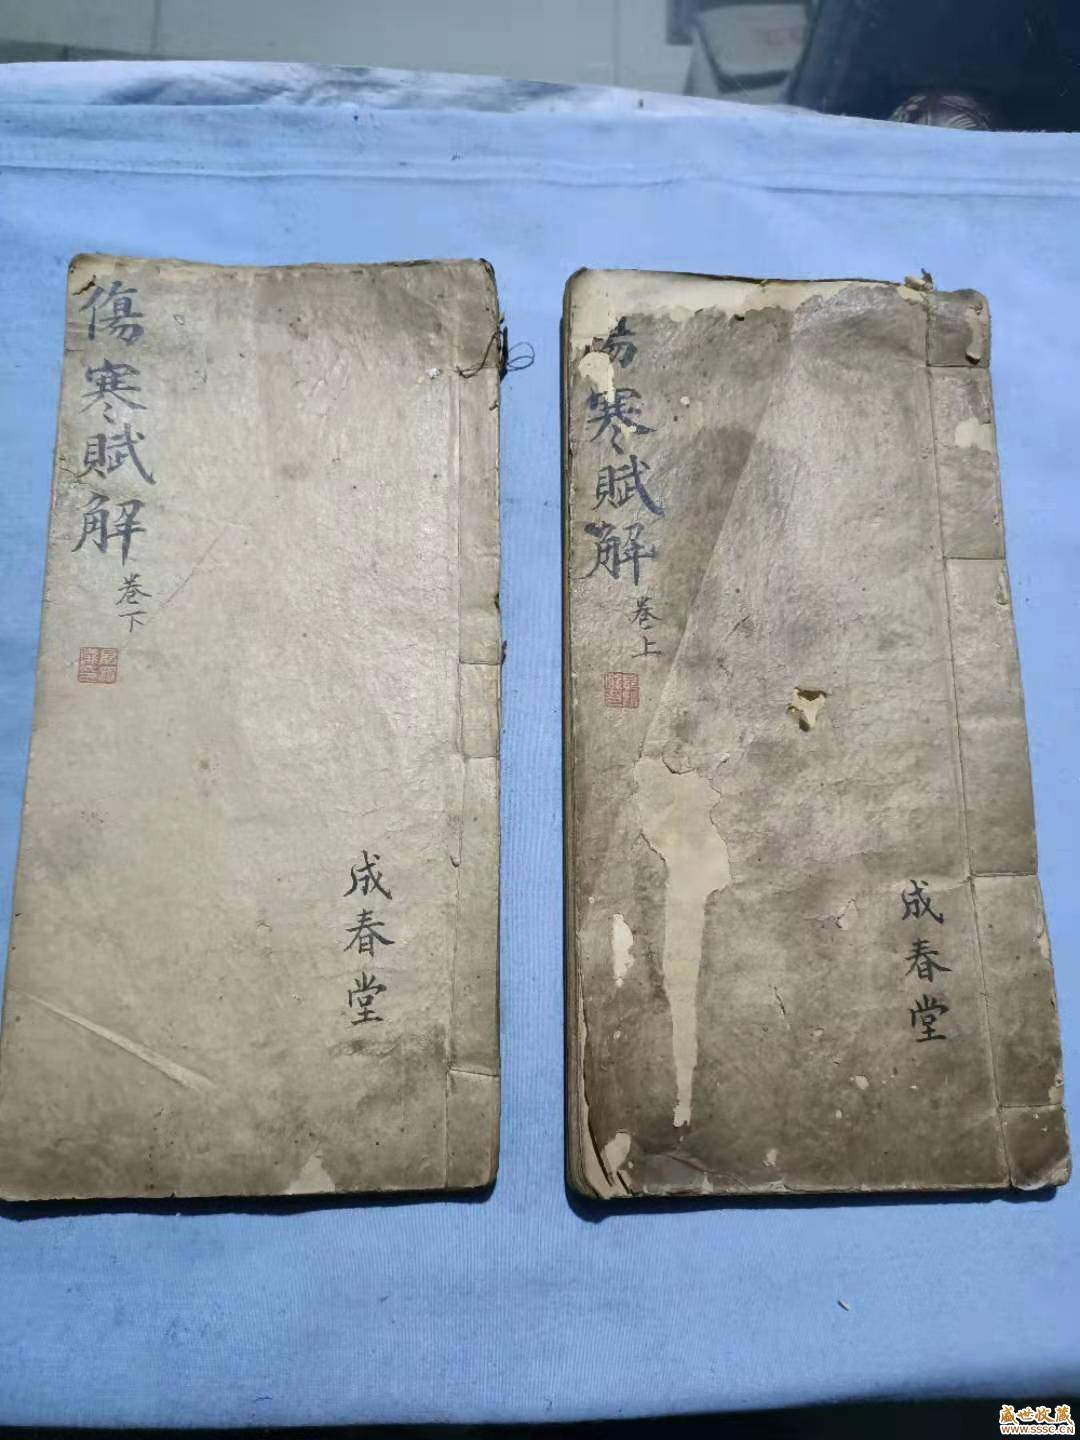 傷寒賦解
卷上
成春堂
傷寒賦解
卷下
成春堂
盛世收藏
WWW.SSSC.CN